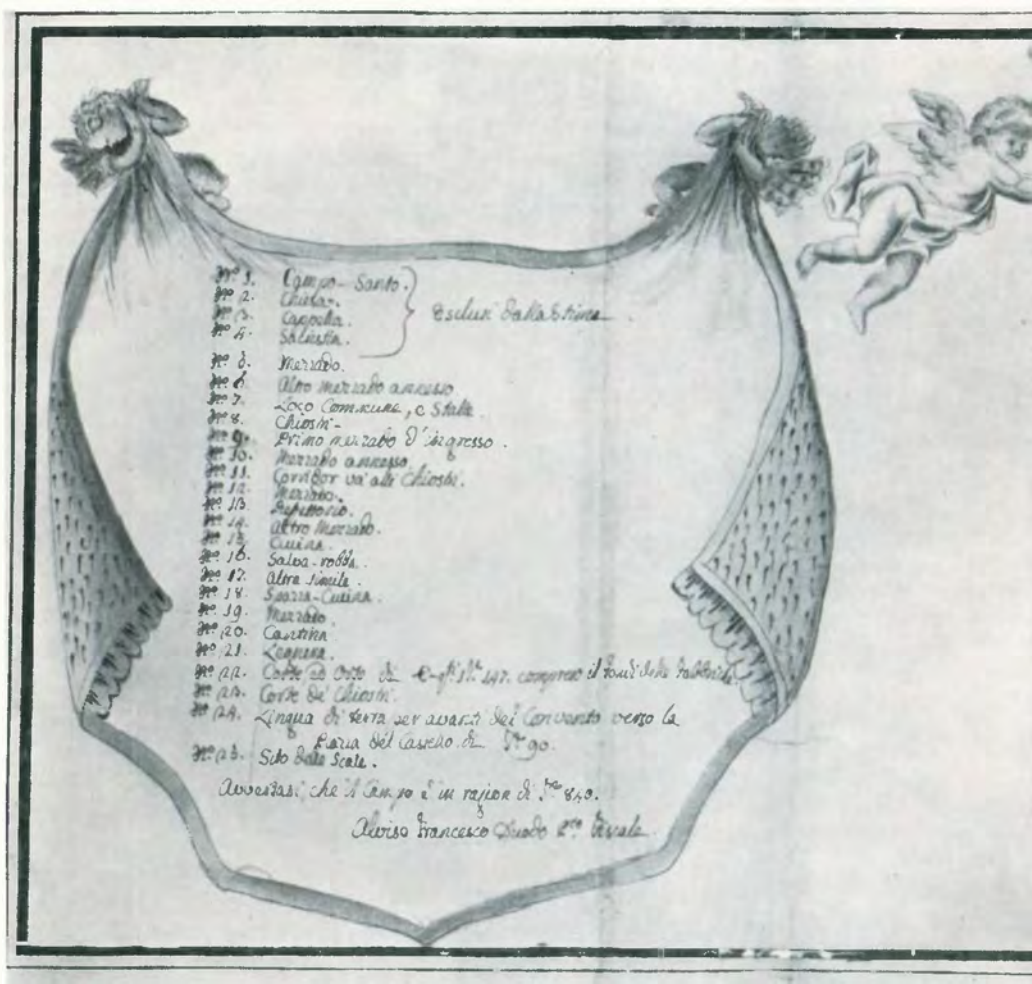 Nº 1. Campo-Santo.
Nº 2. Chiesa.
Nº 3. Cappella.
Nº 4. Sacrestia.
Esclusi dalla Stima
Nº 5. Mezzado.
Nº 6. Altro mezzado annesso
Nº 7. Loco Commune, e Stalla.
Nº 8. Chiostri-
Nº 9. Primo mezzado d'ingresso.
Nº 10. Mezzado annesso
Nº 11. Corridor va' alli Chiostri.
Nº 12. Mezzado.
Nº 13. Refettorio.
Nº 14. Altro Mezzado.
Nº 15. Cucina.
Nº 16. Salva-robba.
Nº 17. Altra simile.
Nº 18. Scazza-Cucina.
Nº 19. Mezzado
Nº 20. Cantina
Nº 21. Legnera.
Nº 22. Corte ed Orto di 147. compreso il fondi delle Fabbriche
Nº 23. Corte de' Chiostri.
Nº 24. Lingua di terra per avanti del Convento verso la
Piazza del Castello di 90.
Nº 25. Sito delle Scale.
Avvertasi, che il Campo è in ragion di 840.
Alvise Francesco Duodo Fiscale